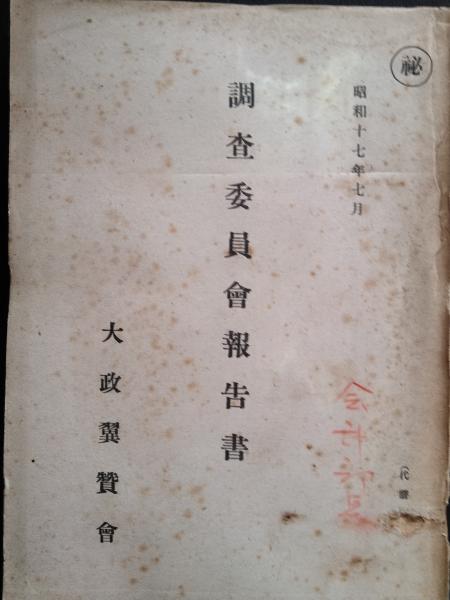 ㊙
昭和十七年七月
(代謄
会計部長
調査委員會報告書
大政翼贊會